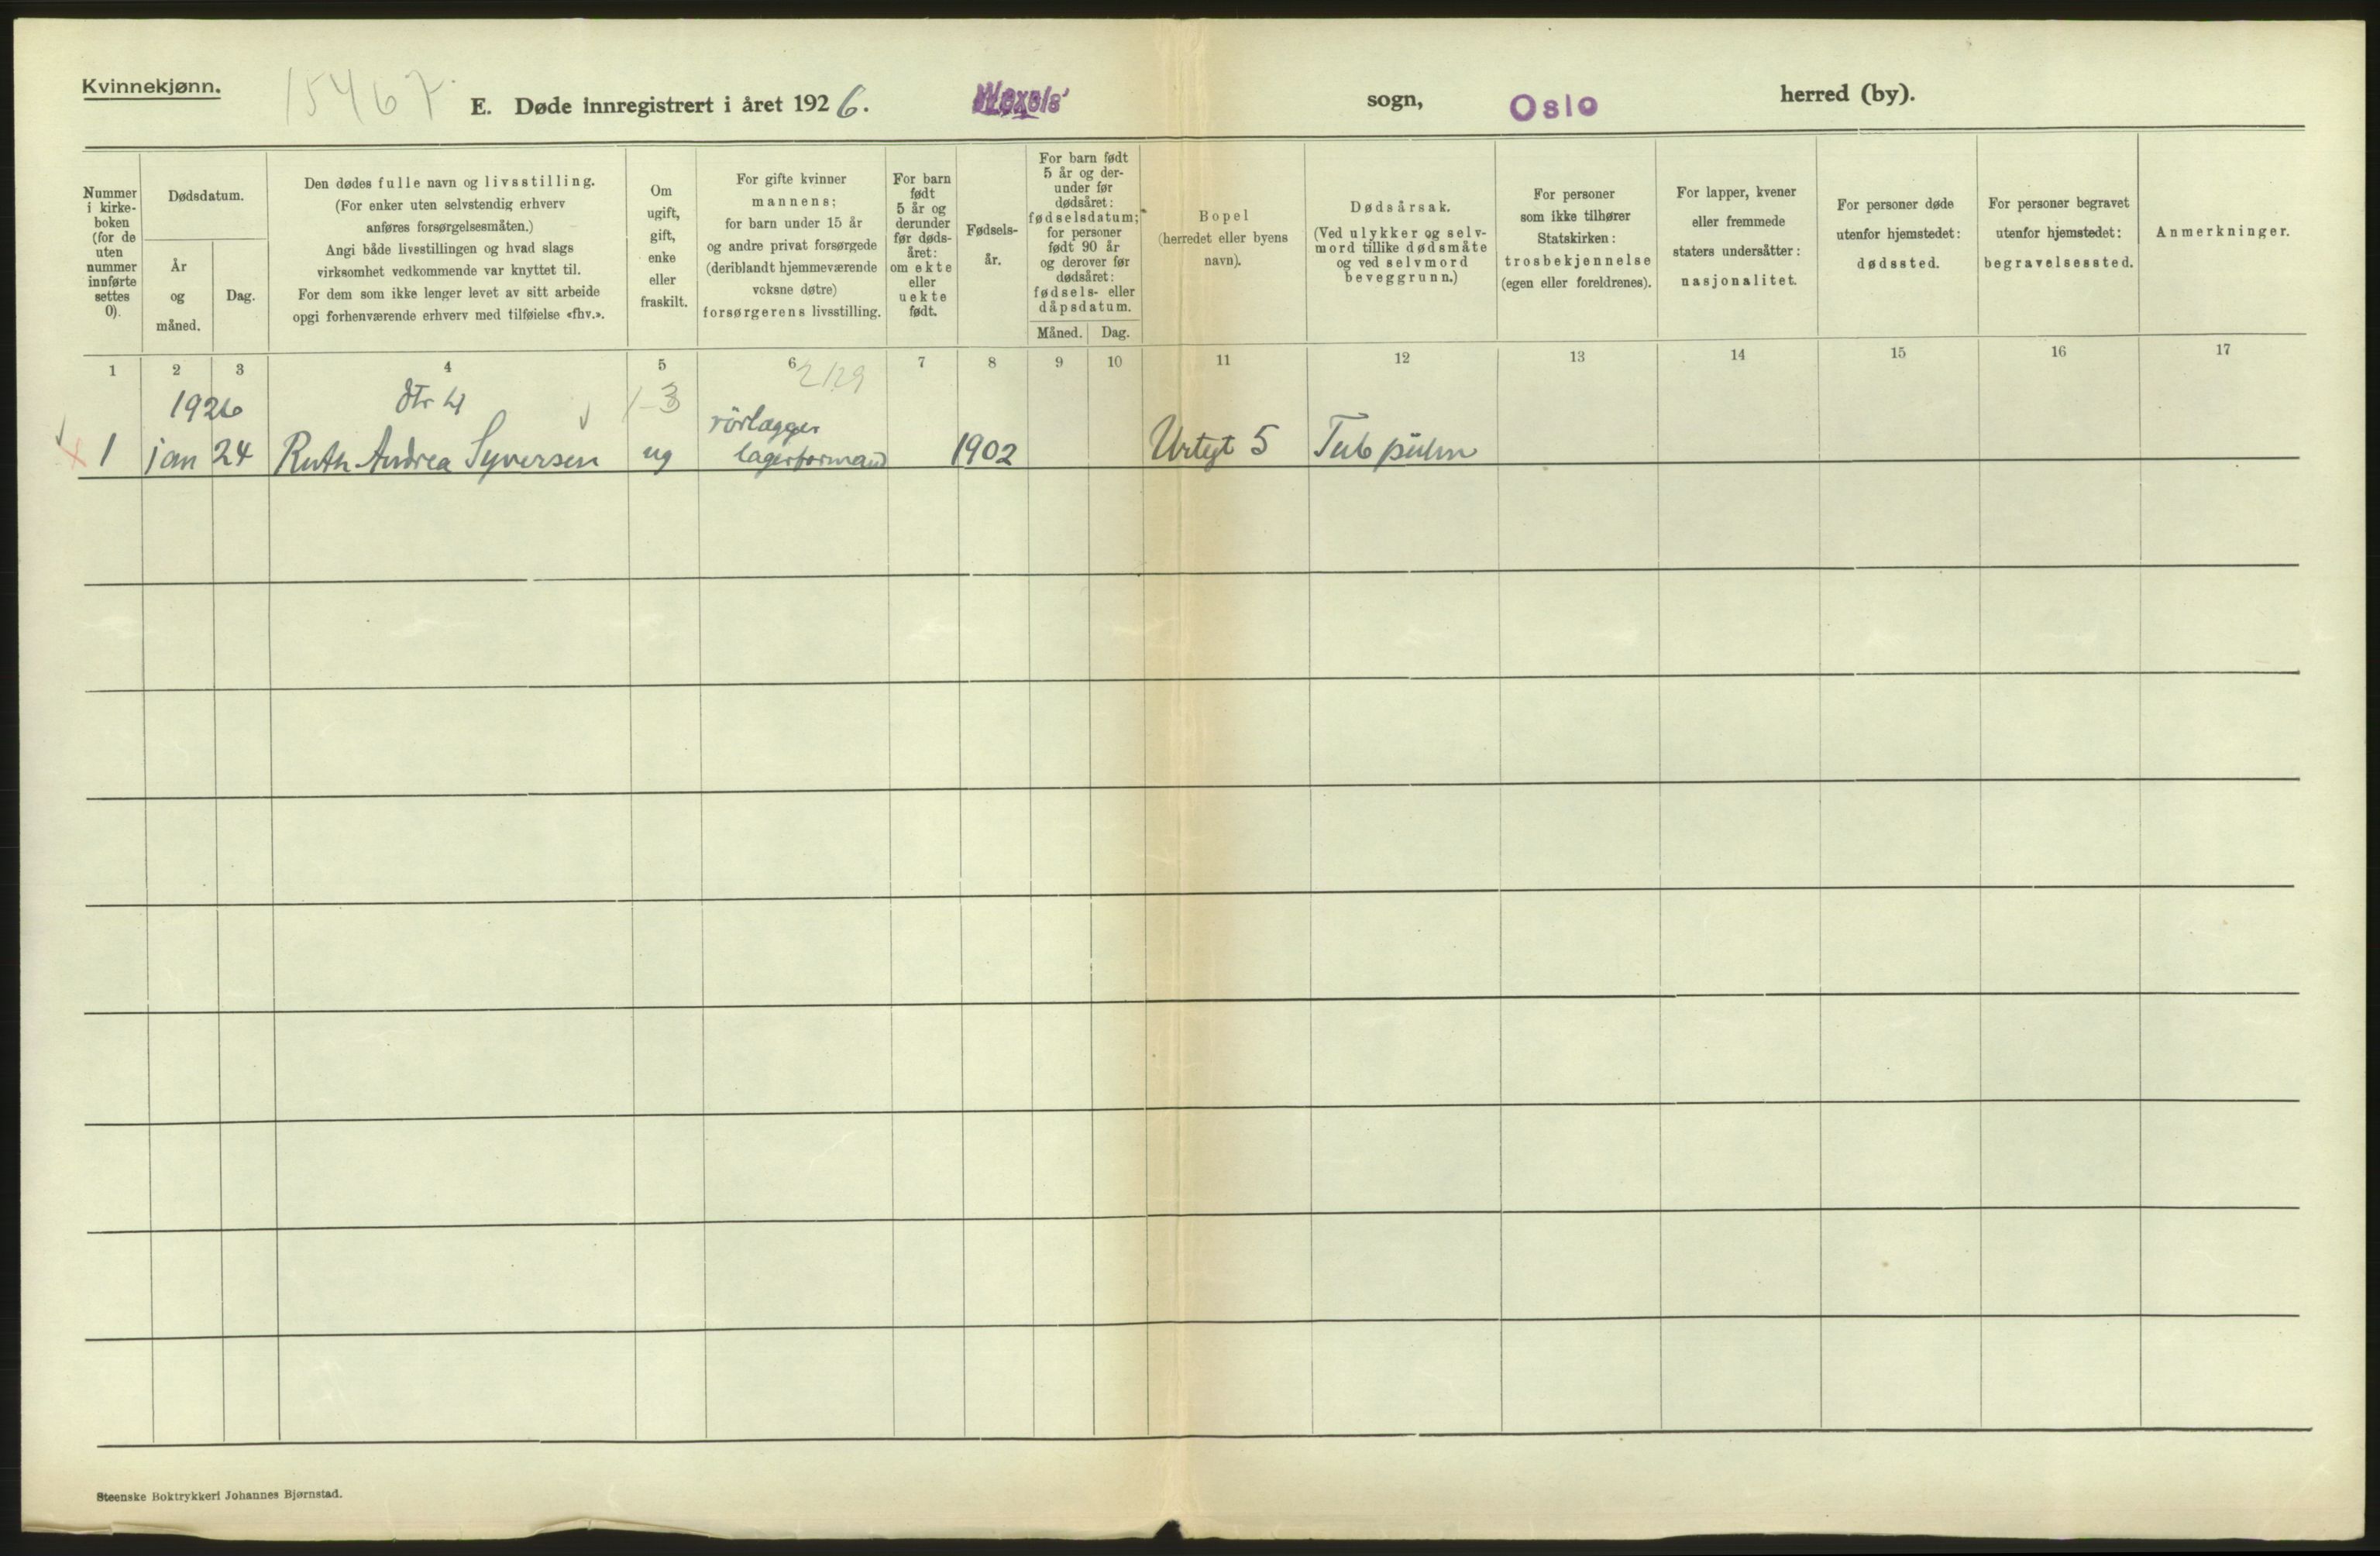 Kvinnekjønn.
15467
E. Døde innregistrert i året 1926. Wexels' sogn, Oslo herred (by).
Nummer
i kirke-
boken
(for de
uten
nummer
innførte
settes
0).
Dødsdatum.
År
og
måned.
Dag.
Den dødes fulle navn og livsstilling.
(For enker uten selvstendig erhverv
anføres forsørgelsesmåten.)
Angi både livsstillingen og hvad slags
virksomhet vedkommende var knyttet til.
For dem som ikke lenger levet av sitt arbeide
opgi forhenværende erhverv med tilføielse «fhv.».
Om
ugift,
gift,
enke
eller
fraskilt.
For gifte kvinner
mannens;
for barn under 15 år
og andre privat forsørgede
(deriblandt hjemmeværende
voksne døtre)
forsørgerens livsstilling.
For barn
født
5 år og
derunder
før døds-
året:
om ekte
eller
uekte
født.
Fødsels-
år.
For barn født
5 år og der-
under før
dødsåret:
fødselsdatum;
for personer
født 90 år
og derover før
dødsåret:
fødsels- eller
dåpsdatum.
Måned. Dag.
Bopel
(herredet eller byens
navn).
Dødsårsak.
(Ved ulykker og selv-
mord tillike dødsmåte
og ved selvmord
beveggrunn.)
For personer
som ikke tilhører
Statskirken:
trosbekjennelse
(egen eller foreldrenes).
For lapper, kvener
eller fremmede
staters undersåtter:
nasjonalitet.
For personer døde
utenfor hjemstedet:
dødssted.
For personer begravet
utenfor hjemstedet:
begravelsessted.
Anmerkninger.
1 2 3 4 5 6 7 8 9 10 11 12 13 14 15 16 17
1926 dtr 4 1-3 2129
rörlægger
1 jan 24 Ruth Andrea Syversen ug lagerformand 1902 Urtegt 5 Tub pulm
Steenske Boktrykkeri Johannes Bjørnstad.